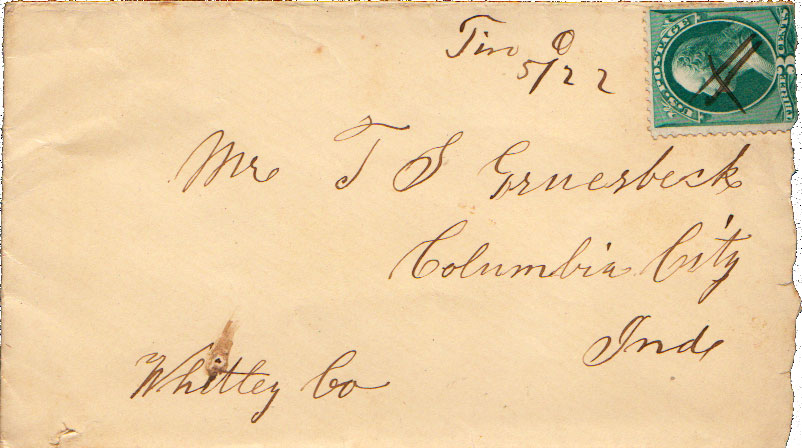 Tiro O
5/22
U.S. POSTAGE
THREE CENTS
Mr T S Gruesbeck
Columbia City
Ind
Whitley Co